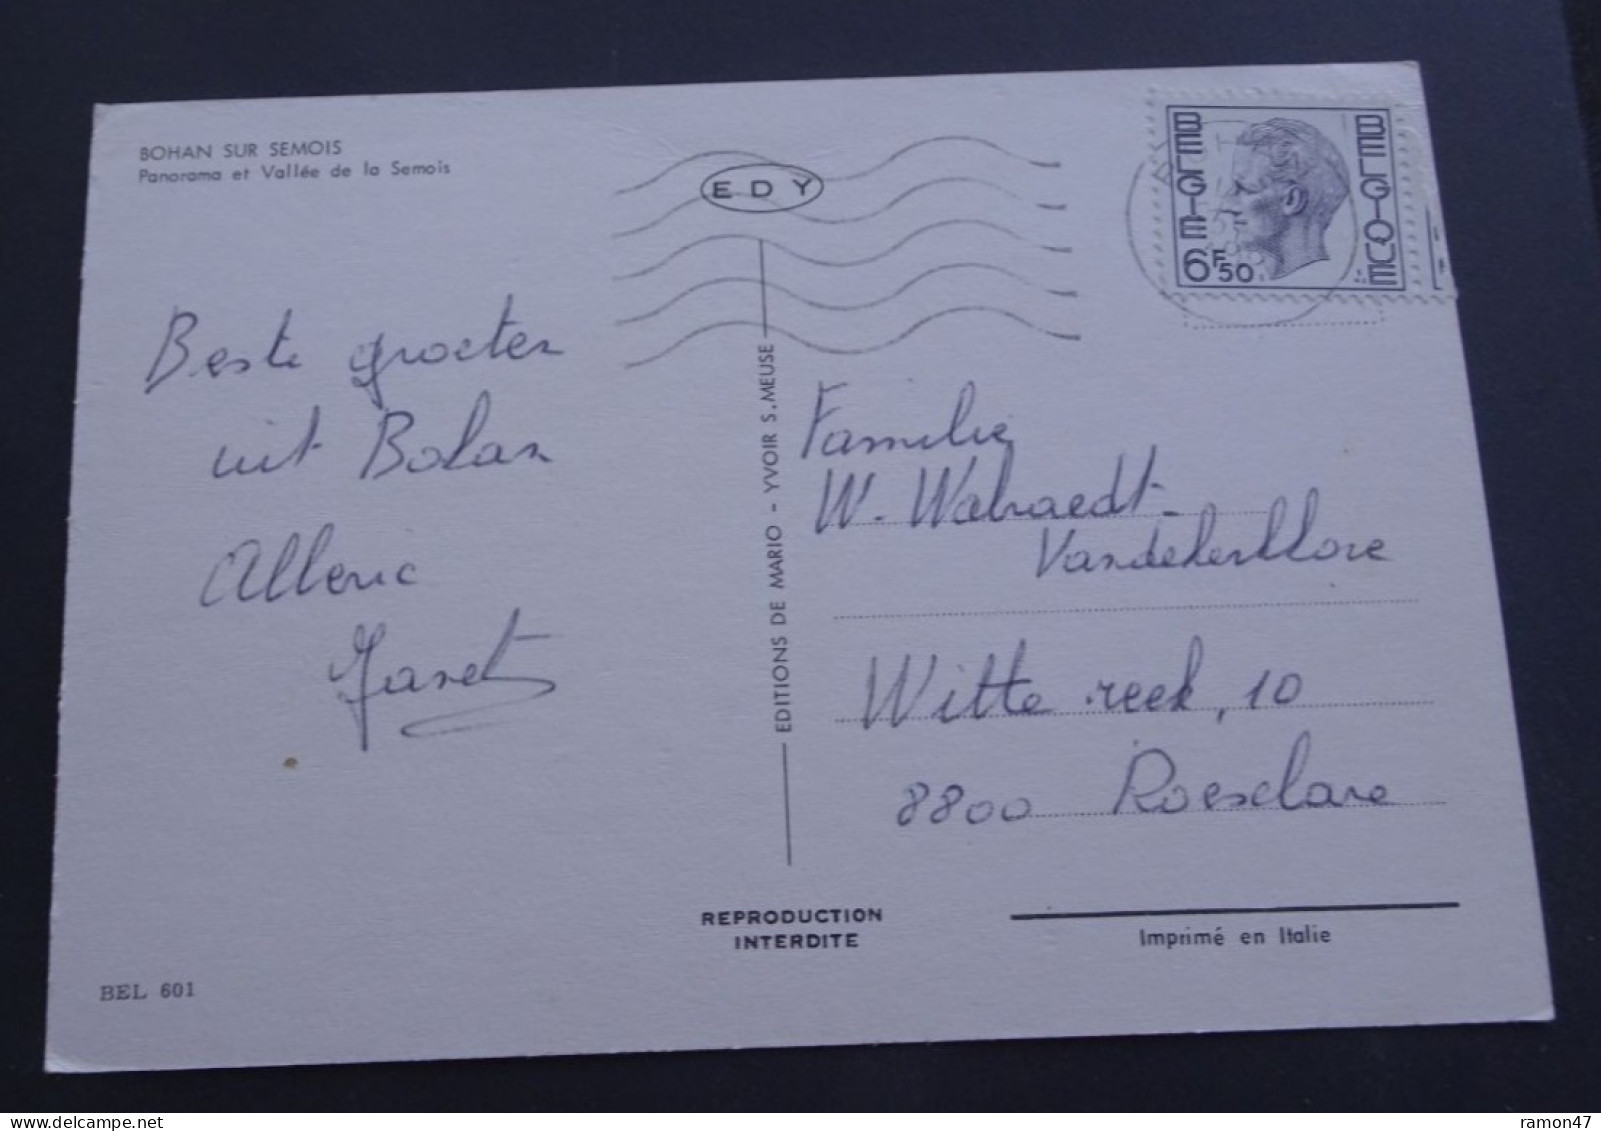 BOHAN SUR SEMOIS
Panorama et Vallée de la Semois
Beste groeten
uit Bohan
BEL 601
EDY
EDITIONS DE MARIO - YVOIR S.MEUSE
REPRODUCTION
INTERDITE
BELGIE
BELGIQUE
6F50
Familie
W. Walraedt-
Witte reek, 10
8800 Roeselare
Imprimé en Italie
www.delcampe.net
ramon47